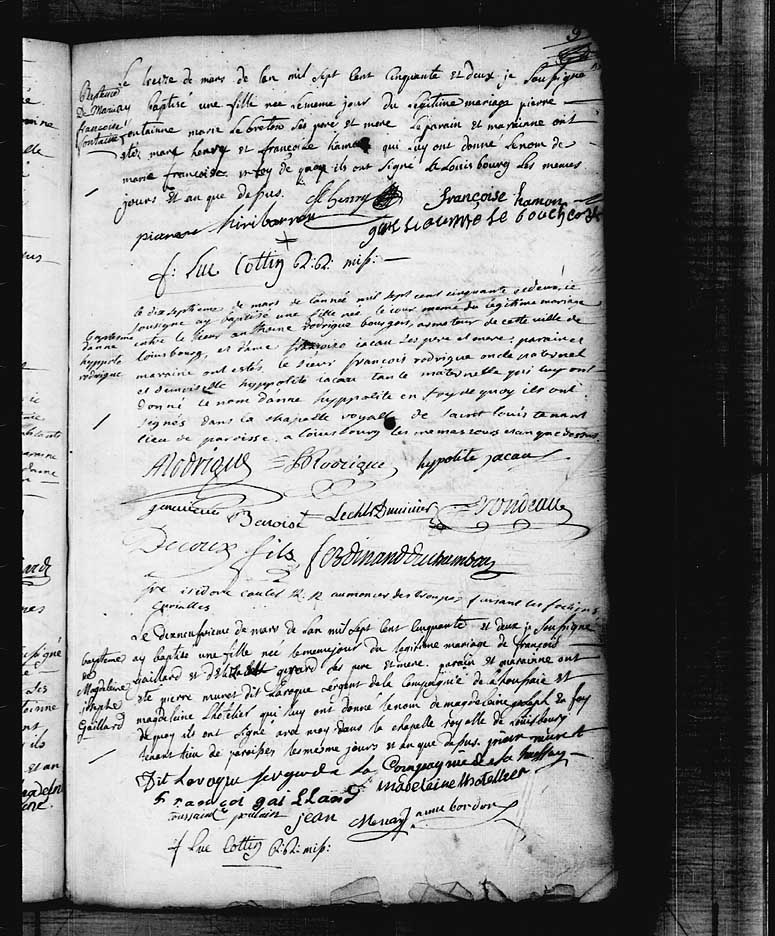 9
Baptême
De Marie
françoise
fontaine
Le treize de mars de lan mil sept cent cinquante et deux je soussigné
ay baptisé une fille née le meme jour du legitime mariage pierre
fontainne marie le breton ses peré et mere. Le parain et marainne ont
été marc henry et françoise hamon qui luy ont donne le nom de
marie françoise. en foy de quoy ils ont signé Le Louisbourg les memes
jours et an que depus.
henry
françoise hamon
pierre hiribarren
guilleaumme Le bouch
f: Luc Cottin R: R: miss:
Le dix septieme de mars de lannée mil sept cent cinquante et deux, je
sousigne ay baptisée une fille née le jour meme du legitime mariage
baptesme
danne
hyppolite
rodrigue
entre le sieur anthoine rodrigue bourgois, armateur de cette ville de
louisbourg, et dame françoise iacau ses pere et mere. parain et
maraine ont estés, le sieur françois rodrigue oncle paternel
et demoiselle hyppolite iacau tante maternelle qui luy ont
donné le nom danne hyppolite en foy de quoy ils ont
signés dans la chapelle royalle de saint louis tenant
lieu de paroisse. a louisbourg les memes jours et an que dessus.
ARodrigue
Rodrigue
hypolite jacau
genevieve
Benoist
Rondeau
Decoux fils
ferdinand duchambon
fre isidore caulet R. R aumonier des troupes faisant les fonctions
Curialles
Le dixneufvieme de mars de lan mil sept cent cinquante et deux je soussigné
baptême
de
Magdeleine
josephe
Gaillard
ay baptisé une fille née le meme jour du legitime mariage de françois
Gaillard et d'Elizabeth guerard ses pere et mere. parain et marainne ont
eté pierre muret dit Laroque sergent de la Compagnie de la houssaie et
magdelaine Lhotelier qui luy ont donné le nom de magdelaine joseph En foy
de quoy ils ont signé avec moy dans la chapelle royalle de Louisbourg
tenant lieu de paroisse les même jours et an que depus. pierr muret
Dit Laroque sergend de la Compagnie de la houssay
françot gaillard
madelaine Lhotellier
toussaint poulain
jean Menay
anne bordon
f Luc Cottin R: R: miss: